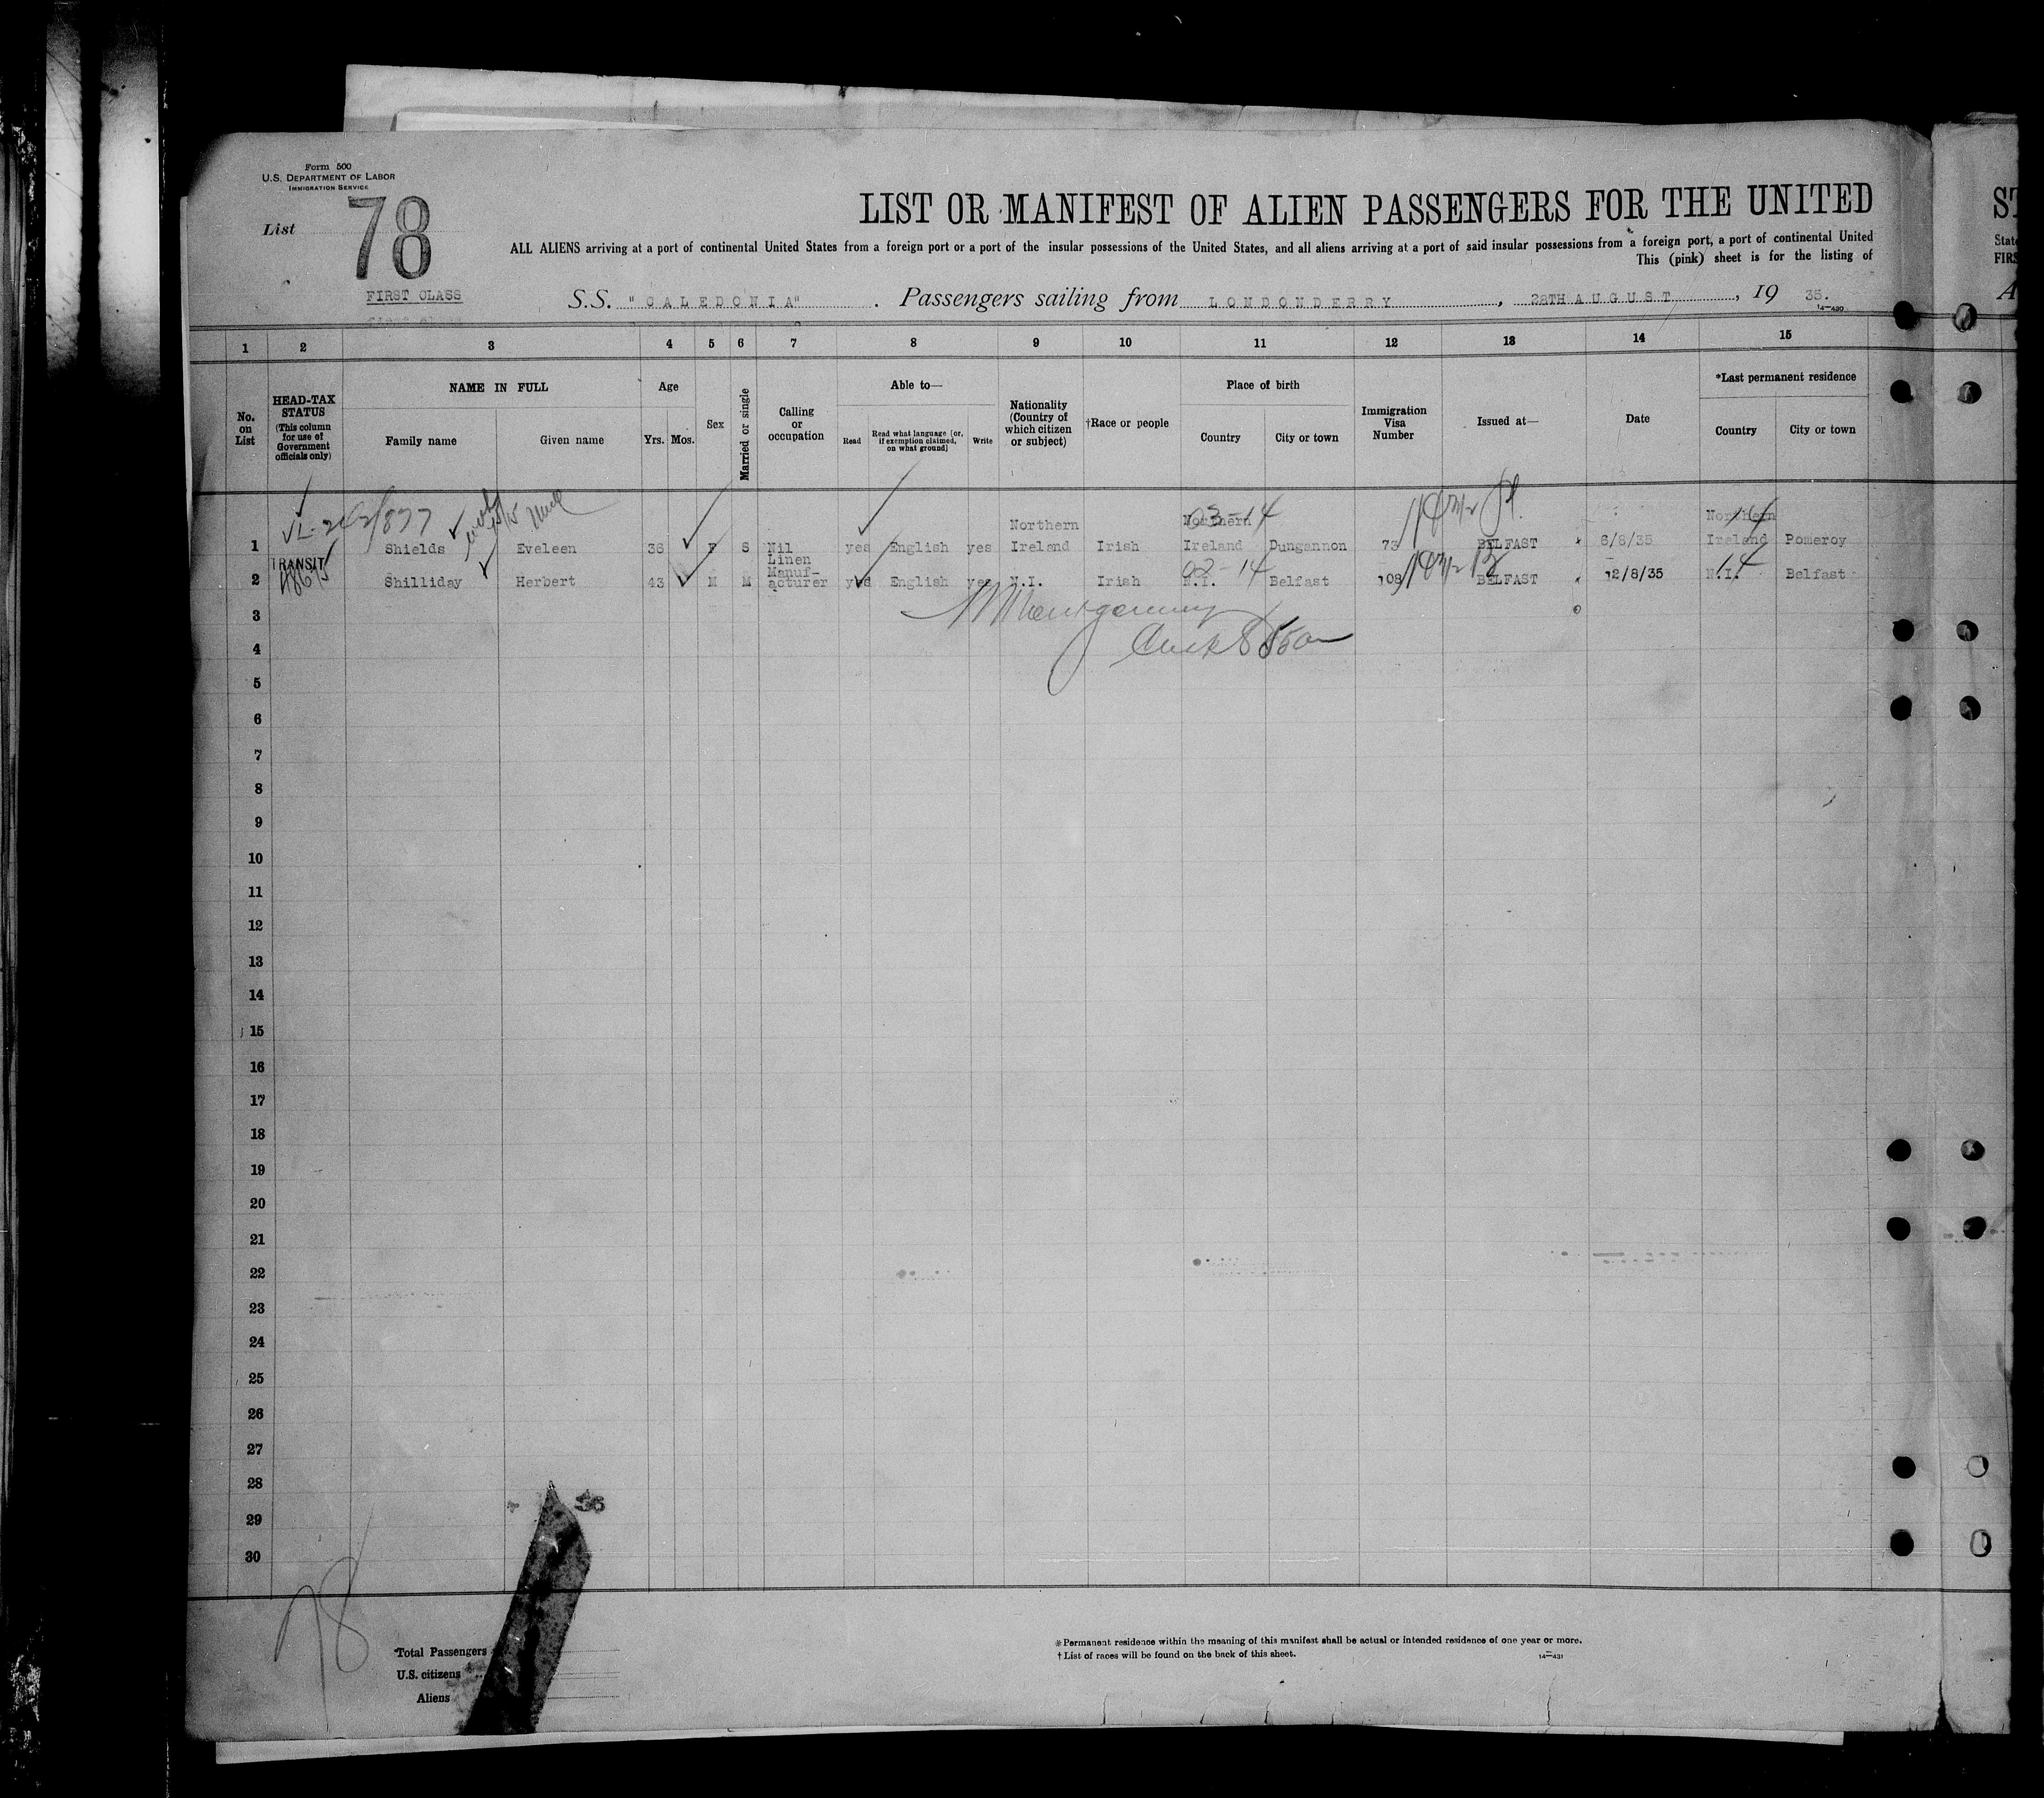 Form 500
U.S. DEPARTMENT OF LABOR
IMMIGRATION SERVICE
List 78
FIRST CLASS
LIST OR MANIFEST OF ALIEN PASSENGERS FOR THE UNITED
ALL ALIENS arriving at a port of continental United States from a foreign port or a port of the insular possessions of the United States, and all aliens arriving at a port of said insular possessions from a foreign port, a port of continental United
This (pink) sheet is for the listing of
S.S. "CALEDONIA". Passengers sailing from LONDONDERRY, 28TH AUGUST, 19 35.
14-430
ST
State
FIRS
A
1 2 3 4 5 6 7 8 9 10 11 12 13 14 15
No. on List
HEAD-TAX STATUS (This column for use of Government officials only)
NAME IN FULL
Family name Given name
Age
Yrs. Mos.
Sex
Married or single
Calling or occupation
Able to—
Read Read what language [or, if exemption claimed, on what ground] Write
Nationality (Country of which citizen or subject)
†Race or people
Place of birth
Country City or town
Immigration Visa Number
Issued at—
Date
*Last permanent residence
Country City or town
03-14 14
1 Shields Eveleen 36 F S Nil yes English yes Northern Ireland Irish Northern Ireland Dungannon 73 BELFAST 6/8/35 Northern Ireland Pomeroy
TRANSIT
02-14 14
2 Shilliday Herbert 43 M M Linen Manuf-acturer yes English yes N.I. Irish N.I. Belfast 108 BELFAST 12/8/35 N.I. Belfast
3 Montgomery
4
5
6
7
8
9
10
11
12
13
14
15
16
17
18
19
20
21
22
23
24
25
26
27
28
29
30
36
78
Total Passengers
U.S. citizens
Aliens
*Permanent residence within the meaning of this manifest shall be actual or intended residence of one year or more.
†List of races will be found on the back of this sheet.
14-431